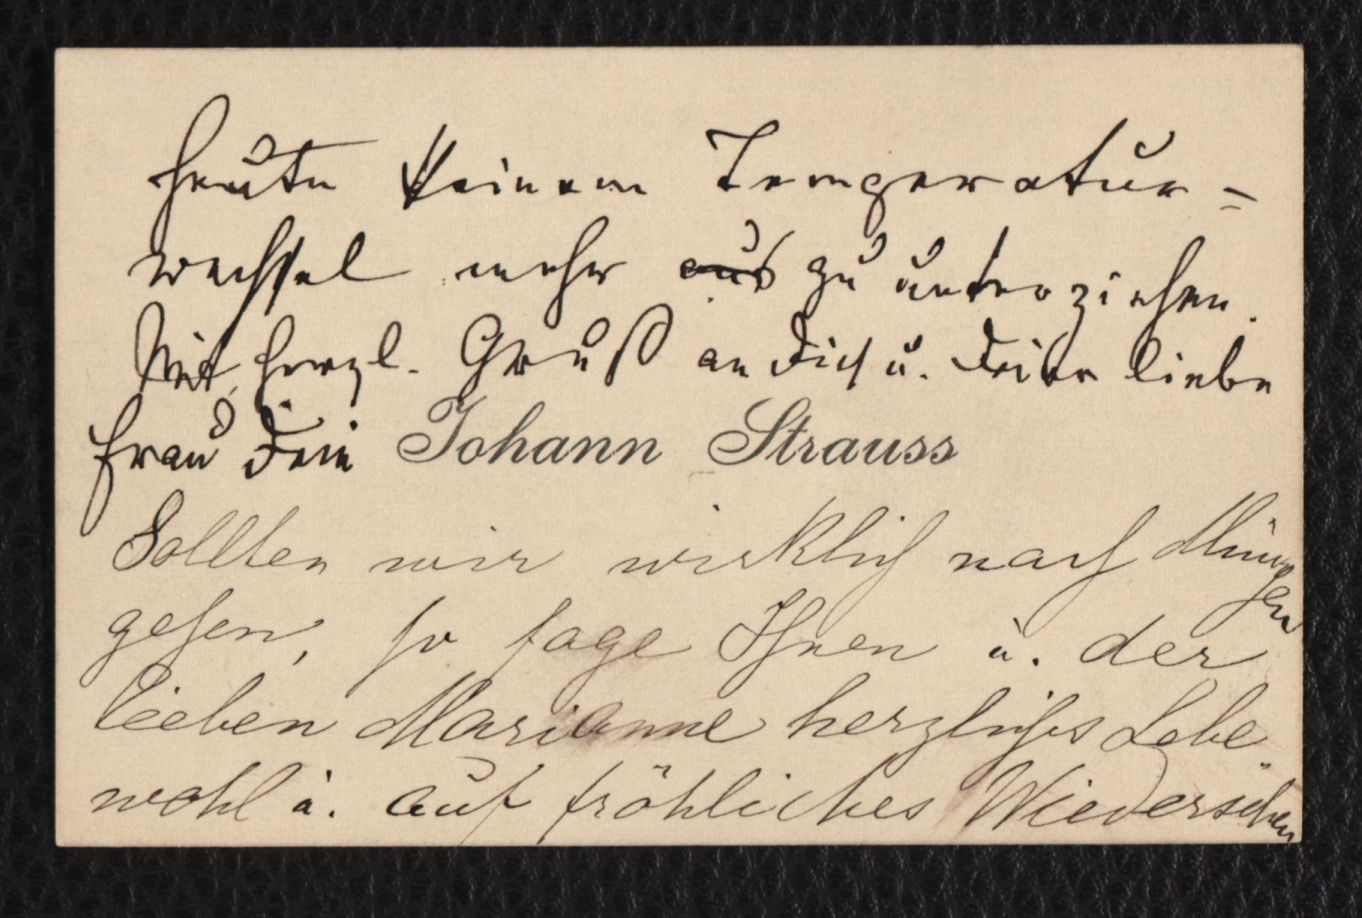 heute keinem Temperatur=
wechsel mehr aus zu unterziehen.
Mit herzl. Gruß an Dich u. Deine liebe
Frau Dein Johann Strauss
Sollten wir wirklich nach München
gehen, so sage Ihnen u. der
lieben Marianne herzliches Lebe
wohl u. auf fröhliches Wiedersehen